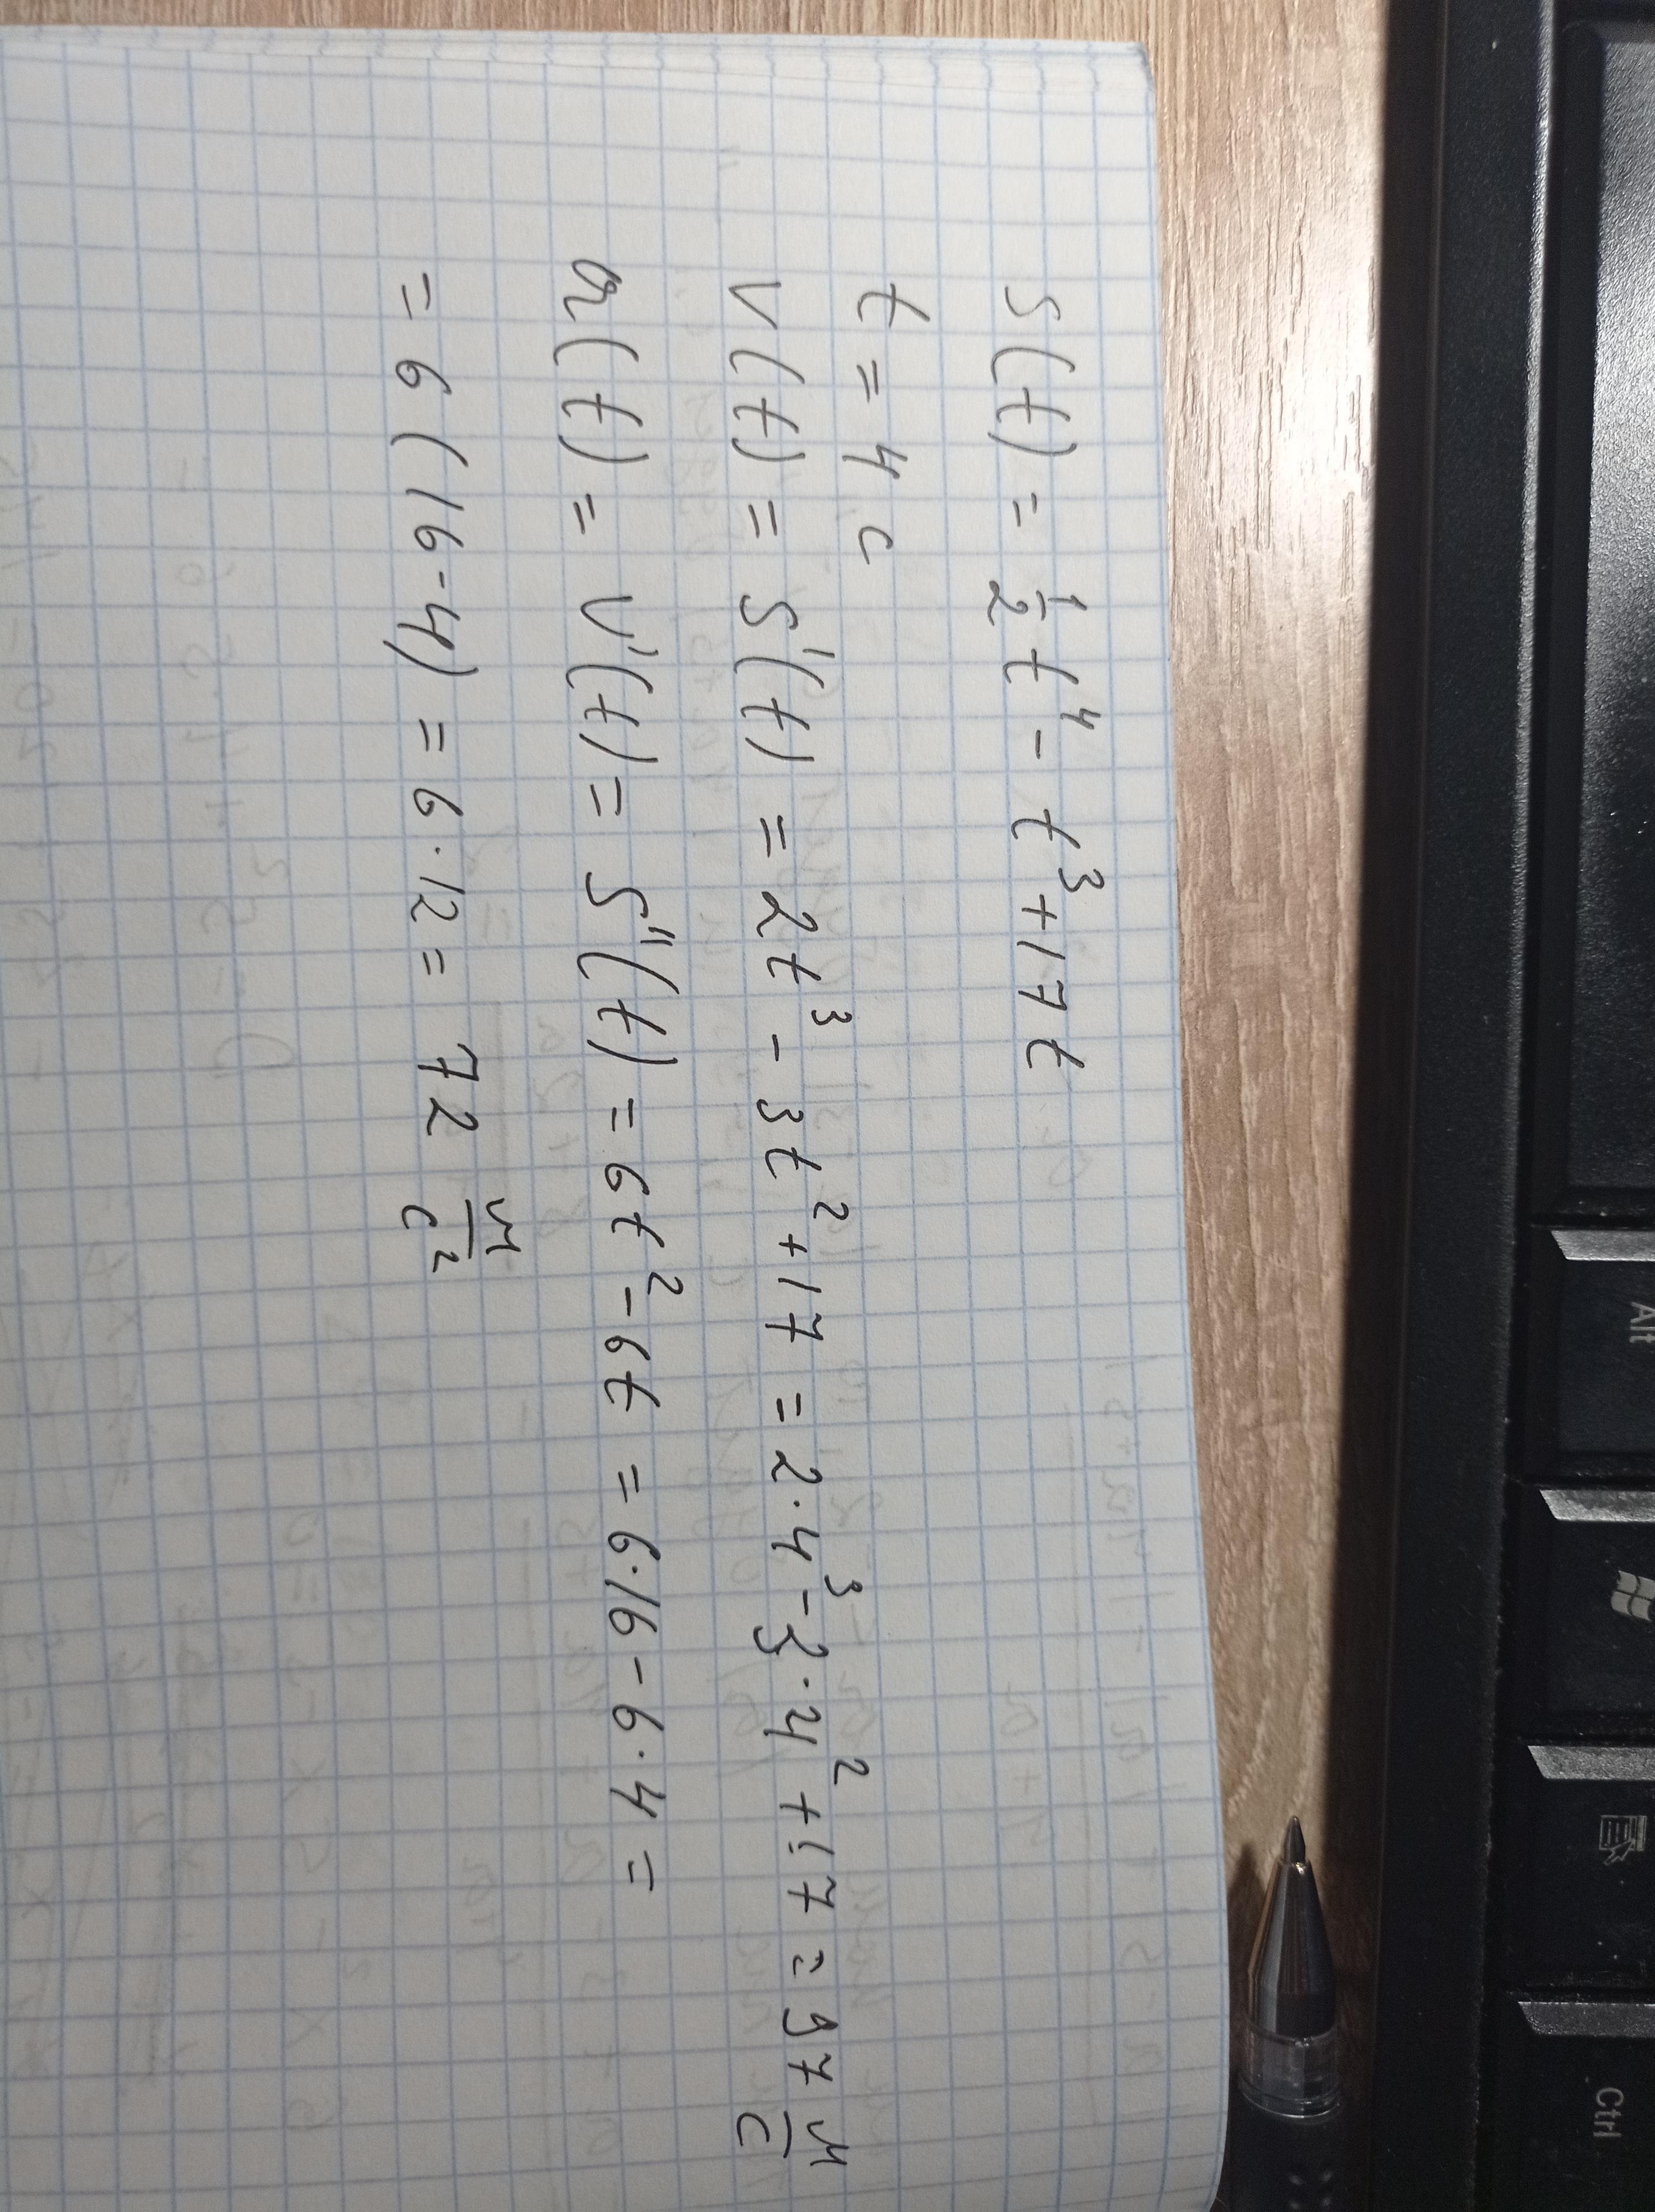 S(t) = 1/2 t⁴ - t³ + 17t
t = 4 с
V(t) = S'(t) = 2t³ - 3t² + 17 = 2·4³ - 3·4² + 17 = 97 м/с
a(t) = V'(t) = S''(t) = 6t² - 6t = 6·16 - 6·4 =
= 6(16-4) = 6·12 = 72 м/с²
Alt
Ctrl